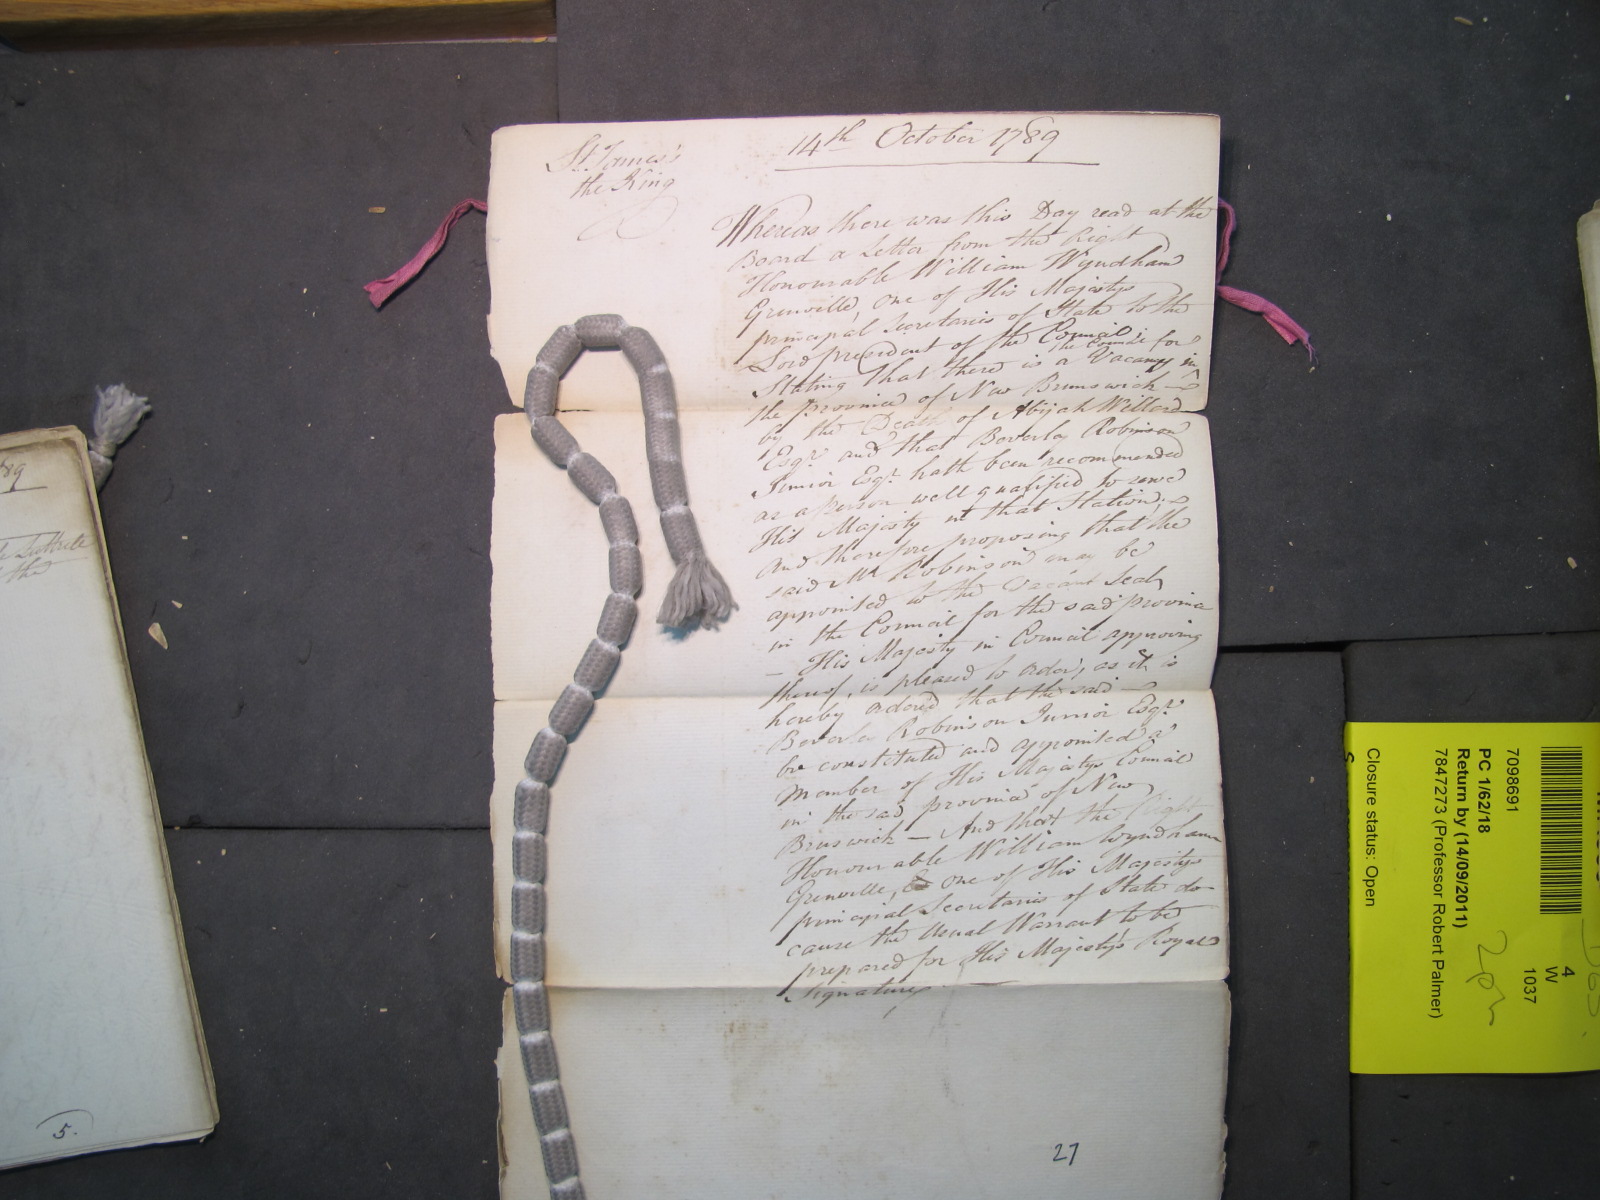 14th October 1789
St. James's
the King
Whereas there was this Day read at the
Board a Letter from the Right
Honourable William Wyndham
Grenville, One of His Majestys
principal Secretaries of State to the
Lord president of the Council
the Council for
Stating that there is a Vacancy in
the province of New Brunswick
by the Death of Abijah Willard
Esqr. and that Beverley Robinson
Junior Esqr. hath been recommended
as a person well qualified to serve
His Majesty in that Station;
And therefore proposing that the
said Mr Robinson may be
appointed to the vacant Seat
in the Council for the said province
— His Majesty in Council approving
thereof, is pleased to order, as it is
hereby ordered that the said —
Beverley Robinson Junior Esqr.
be constituted and appointed a
Member of His Majestys Council
in the said province of New
Brunswick — And that the Right
Honourable William Wyndham
Grenville, One of His Majestys
principal Secretaries of State do
cause the Usual Warrant to be
prepared for His Majesty's Royal
Signature. —
27
89
Luttrell
the
5.
7098691
PC 1/62/18
Return by (14/09/2011)
7847273 (Professor Robert Palmer)
Closure status: Open
4
W
1037